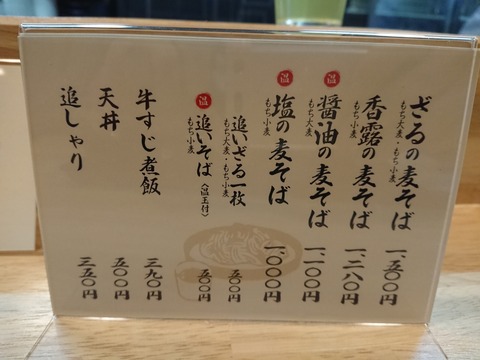 ざるの麦そば
もち大麦・もち小麦
一、五〇〇円
香露の麦そば
もち小麦
一、二八〇円
温
醤油の麦そば
もち大麦
一、一〇〇円
温
塩の麦そば
もち小麦
一、〇〇〇円
追いざる一枚
もち大麦・もち小麦
五〇〇円
温
追いそば〈温玉付〉
もち小麦
五〇〇円
牛すじ煮飯
三九〇円
天丼
五〇〇円
追しゃり
三五〇円